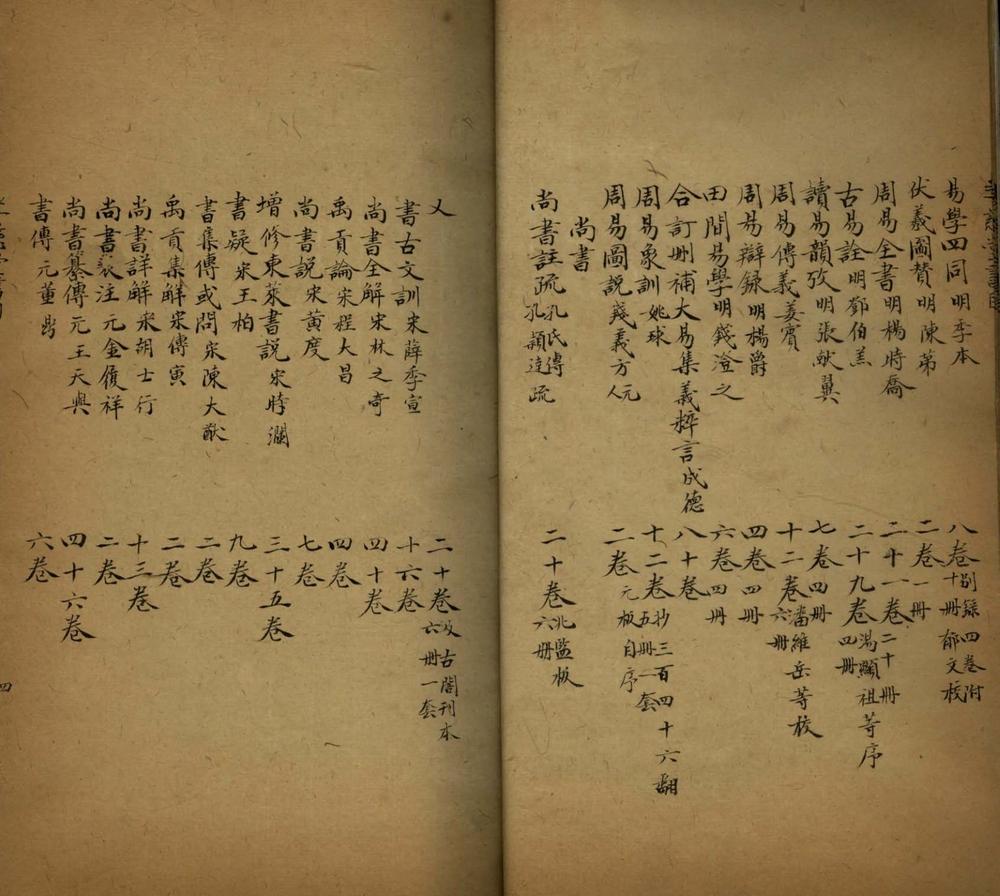 易學四同明季本 八卷別錄四卷附十册郁文校
伏羲圖贊明陳第 二卷一册
周易全書明楊時喬 二十一卷二十册
古易詮明鄧伯羔 二十九卷湯顯祖等序四册
讀易韻攷明張獻翼 七卷四册
周易傳義姜賓 十二卷潘維岳等校六册
周易辯錄明楊爵 四卷四册
田間易學明錢澄之 六卷四册
合訂刪補大易集義粹言成德 八十卷
周易象訓姚球 十二卷抄三百四十六翻五册一套
周易圖說錢義方元人 二卷元板自序
尚書
尚書註疏孔氏傳孔穎達疏 二十卷北監板六册
又 二十卷汲古閣刊本六册一套
書古文訓宋薛季宣 十六卷
尚書全解宋林之奇 四十卷
禹貢論宋程大昌 四卷
尚書說宋黃度 七卷
增修東萊書說宋時瀾 三十五卷
書疑宋王柏 九卷
書集傳或問宋陳大猷 二卷
禹貢集解宋傅寅 二卷
尚書詳解宋胡士行 十三卷
尚書表注元金履祥 二卷
尚書纂傳元王天與 四十六卷
書傳元董鼎 六卷
四